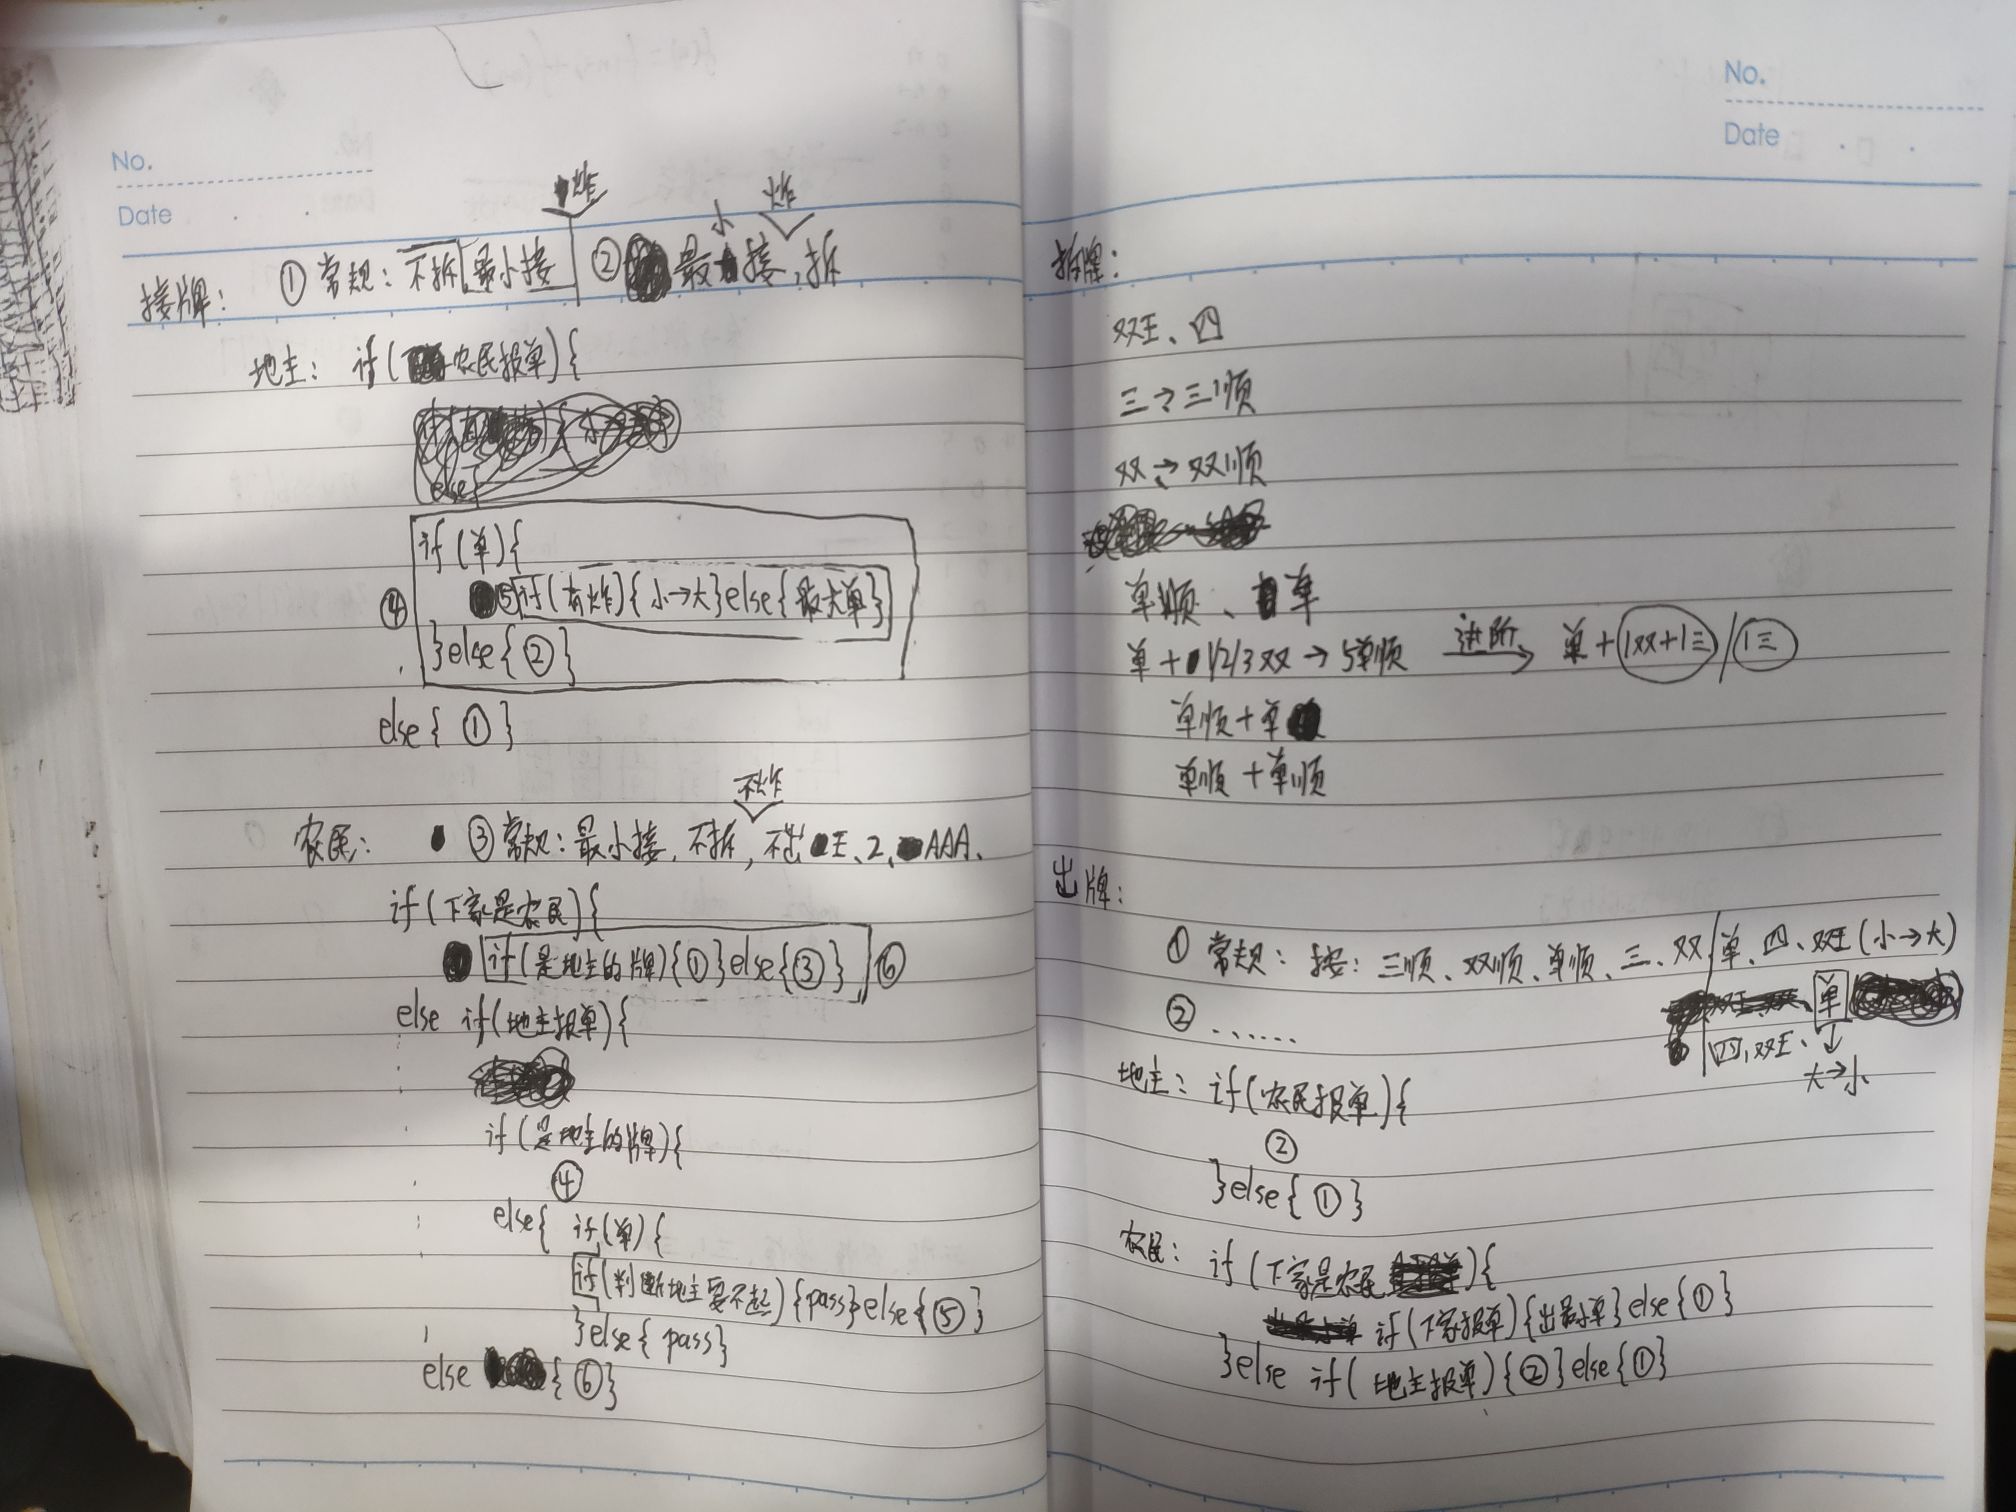 No.
Date
炸
小 炸
接牌: ① 常规: 不拆 最小接 ② 最接,拆
地主: if(农民报单){
else{
if(单){
④ ⑤ if(有炸){小→大}else{最大单}
}else{②}
else{ ① }
不炸
农民: ③ 常规: 最小接, 不拆, 不出王、2、AAA、
if(下家是农民){
if(是地主的牌){①}else{③} ⑥
else if(地主报单){
if(是地主的牌){
④
else{ if(单){
if(判断地主要不起){pass}else{⑤}
}else{ pass}
else {⑥}
No.
Date
拆牌:
双王、四
三→三顺
双→双顺
单顺、单
单+1/2/3双→5单顺 进阶→ 单+1双+1三/1三
单顺+单
单顺+单顺
出牌:
① 常规: 按: 三顺、双顺、单顺、三、双、单、四、双王(小→大)
单
② ......
四,双王、↓
大→小
地主: if(农民报单){
②
}else{ ① }
农民: if(下家是农民){
if(下家报单){出最小单}else{①}
}else if(地主报单){②}else{①}